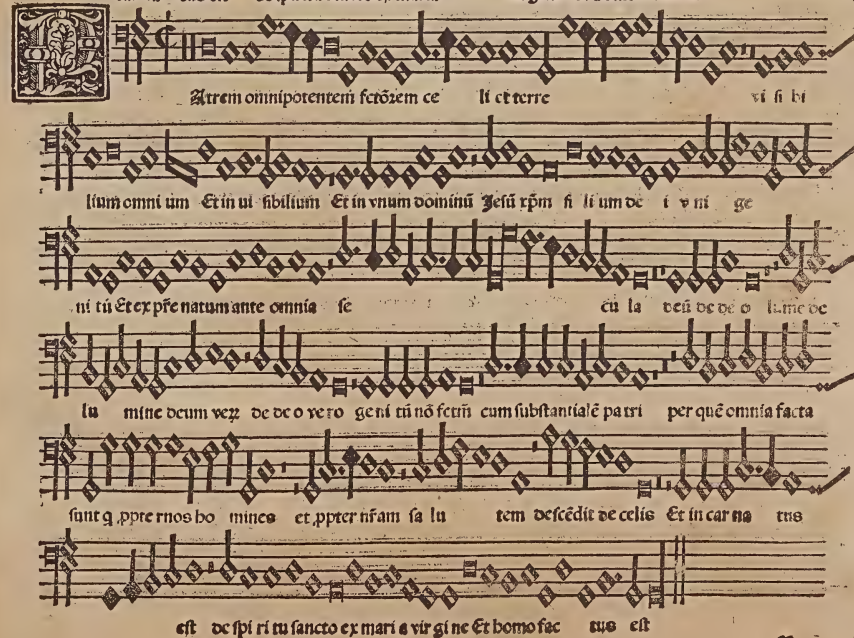 Atrem omnipotentem fctōrem ce li et terre vi si bi
lium omni um Et in ui sibilium Et in vnum dominū Jesū xp̄m fi li um de i v ni ge
ni tū Et ex pr̄e natum ante omnia se cu la deū de de o lume de
lu mine deum veꝝ de de o vero geni tū nō fctm̄ cum substantialē pa tri per quē omnia facta
sunt q ꝓpter nos ho mines et ꝓpter nr̄am sa lu tem descēdit de celis Et in car na tus
est de spi ri tu sancto ex mari a vir gi ne Et homo fac tus est